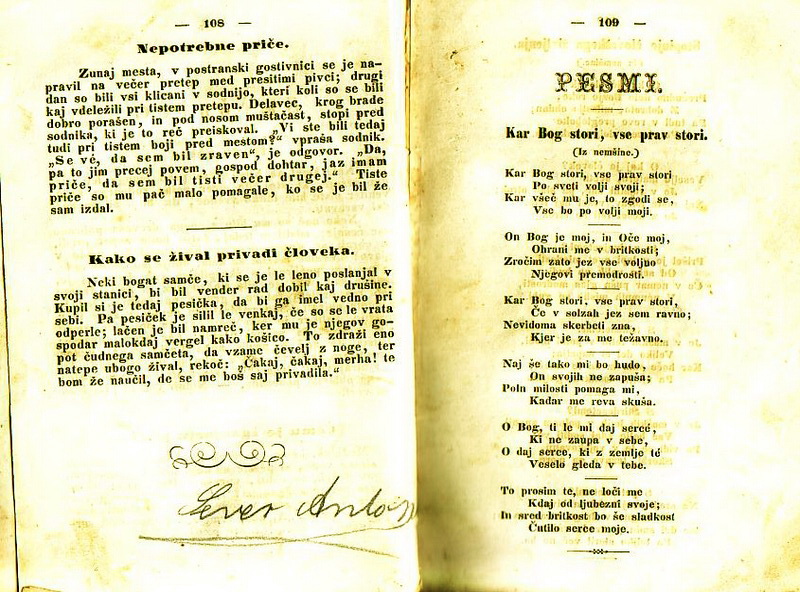 — 108 —
Nepotrebne priče.
Zunaj mesta, v postranski gostivnici se je na-
pravil na večer pretep med presitimi pivci; drugi
dan so bili vsi klicani v sodnijo, kteri koli so se bili
kaj vdeležili pri tistem pretepu. Delavec, krog brade
dobro porašen, in pod nosom muštačast, stopi pred
sodnika, ki je to reč preiskoval. „Vi ste bili tedaj
tudi pri tistem boji pred mestom?“ vpraša sodnik.
„Se vé, da sem bil zraven“, je odgovor. „Da,
pa to jim precej povem, gospod dohtar, jaz imam
priče, da sem bil tisti večer drugej.“ Tiste
priče so mu pač malo pomagale, ko se je bil že
sam izdal.
Kako se žival privadi človeka.
Neki bogat samče, ki se je le leno poslanjal v
svoji stanici, bi bil vender rad dobil kaj drušine.
Kupil si je tedaj pesička, da bi ga imel vedno pri
sebi. Pa pesiček je silil le venkaj, če so se le vrata
odperle; lačen je bil namreč, ker mu je njegov go-
spodar malokdaj vergel kako košico. To zdraži eno
pot čudnega samčeta, da vzame čevelj z noge, ter
natepe ubogo žival, rekoč: „Čakaj, čakaj, merha! te
bom že naučil, de se me boš saj privadila.“
Sever Anton
— 109 —
PESMI.
Kar Bog stori, vse prav stori.
(Iz nemšine.)
Kar Bog stori, vse prav stori
Po sveti volji svoji;
Kar všeč mu je, to zgodi se,
Vse bo po volji moji.
On Bog je moj, in Oče moj,
Ohrani me v britkosti;
Zročim zato jez vse voljno
Njegovi premodrosti.
Kar Bog stori, vse prav stori,
Če v solzah jez sem ravno;
Nevidoma skerbeti zna,
Kjer je za me težavno.
Naj še tako mi bo hudo,
On svojih ne zapuša;
Poln milosti pomaga mi,
Kadar me reva skuša.
O Bog, ti le mi daj sercé,
Ki ne zaupa v sebe,
O daj serce, ki z zemlje té
Veselo gleda v tebe.
To prosim te, ne loči me
Kdaj od ljubezni svoje;
In sred britkost bo še sladkost
Čutilo serce moje.